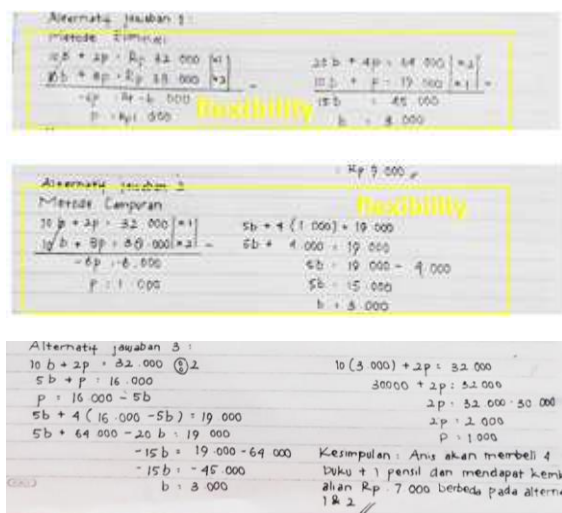 Alternatif jawaban 1 :
Metode Eliminasi
10b + 2p = Rp 32.000 |×1|
10b + 8p = Rp 38.000 |×2| -
-6p = Rp -6.000
p = Rp 1.000
20b + 4p = 64.000 |×2|
- 
15b = 45.000
b = 3.000
flexibility
Rp 7.000
Alternatif jawaban 2
Metode Campuran
flexibility
10b + 2p = 32.000 |×1|
10b + 8p = 38.000 |×2| -
-6p = -6.000
p = 1.000
5b + 4 (1.000) = 19.000
5b + 4.000 = 19.000
5b = 19.000 - 4.000
5b = 15.000
b = 3.000
Alternatif jawaban 3 :
10b + 2p = 32.000 : 2
5b + p = 16.000
p = 16.000 - 5b
5b + 4 (16.000 - 5b) = 19.000
5b + 64.000 - 20b = 19.000
-15b = 19.000 - 64.000
-15b = -45.000
b = 3.000
10 (3.000) + 2p = 32.000
30000 + 2p = 32.000
2p = 32.000 - 30.000
2p = 2.000
p = 1.000
Kesimpulan : Anis akan membeli 4
buku + 1 pensil dan mendapat kemb
alian Rp. 7.000 berbeda pada alterna
1 & 2